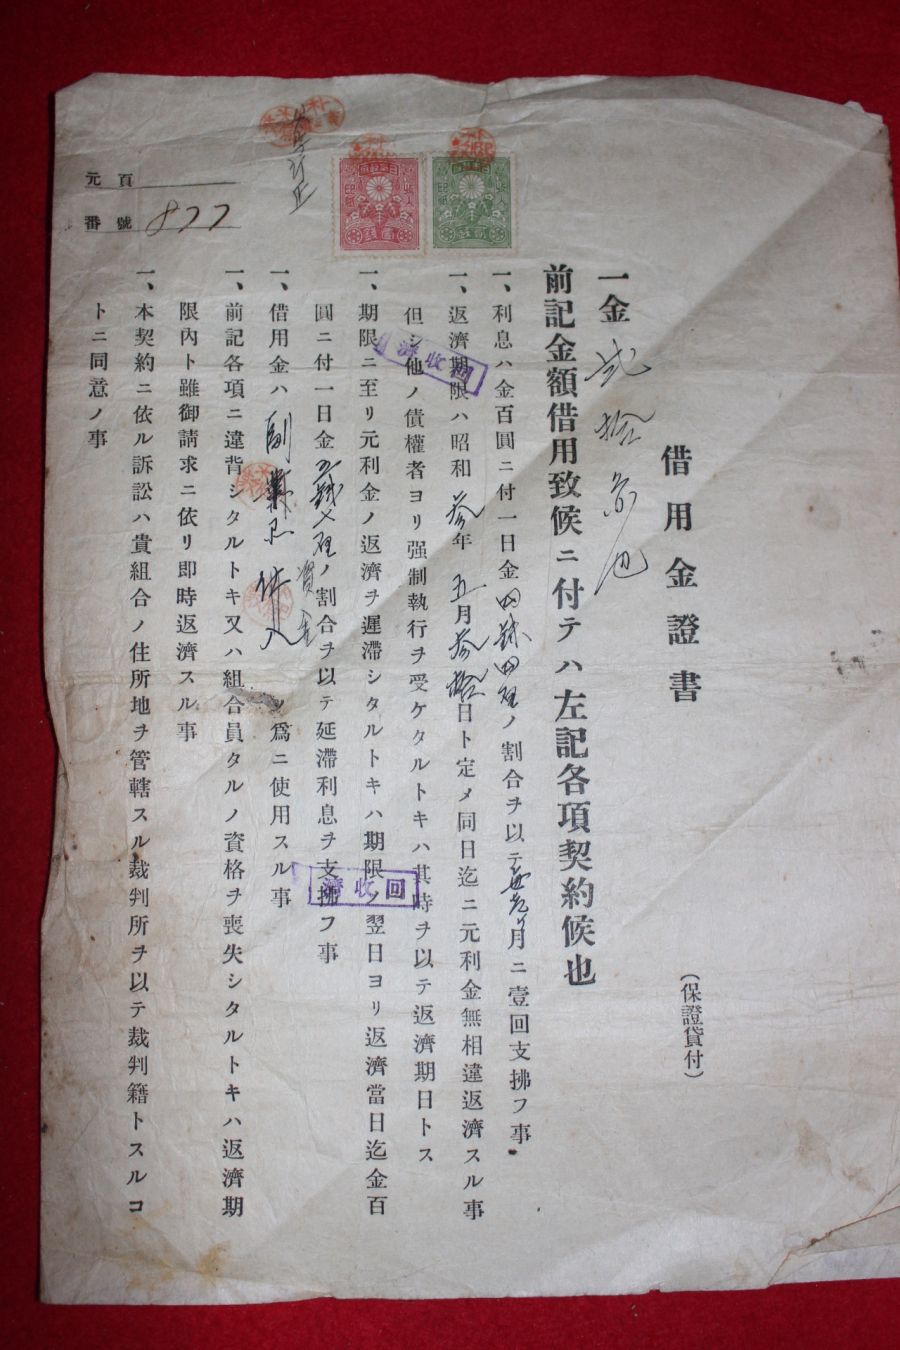 借用金證書
(保證貸付)
一金貳拾圓也
前記金額借用致候ニ付テハ左記各項契約候也
一、利息ハ金百圓ニ付一日金四錢四厘ノ割合ヲ以テ月ニ壹回支拂フ事
一、返濟期限ハ昭和參年五月參拾日ト定メ同日迄ニ元利金無相違返濟スル事
但シ他ノ債權者ヨリ强制執行ヲ受ケタルトキハ其時ヲ以テ返濟期日トス
一、期限ニ至リ元利金ノ返濟ヲ遲滯シタルトキハ期限ノ翌日ヨリ返濟當日迄金百
圓ニ付一日金錢厘ノ割合ヲ以テ延滯利息ヲ支拂フ事
一、借用金ハ副業資金ノ爲ニ使用スル事
一、前記各項ニ違背シタルトキ又ハ組合員タルノ資格ヲ喪失シタルトキハ返濟期
限內ト雖御請求ニ依リ即時返濟スル事
一、本契約ニ依ル訴訟ハ貴組合ノ住所地ヲ管轄スル裁判所ヲ以テ裁判籍トスルコ
トニ同意ノ事
元頁
番號 877
回收濟
回收濟
收入
印紙
收入
印紙